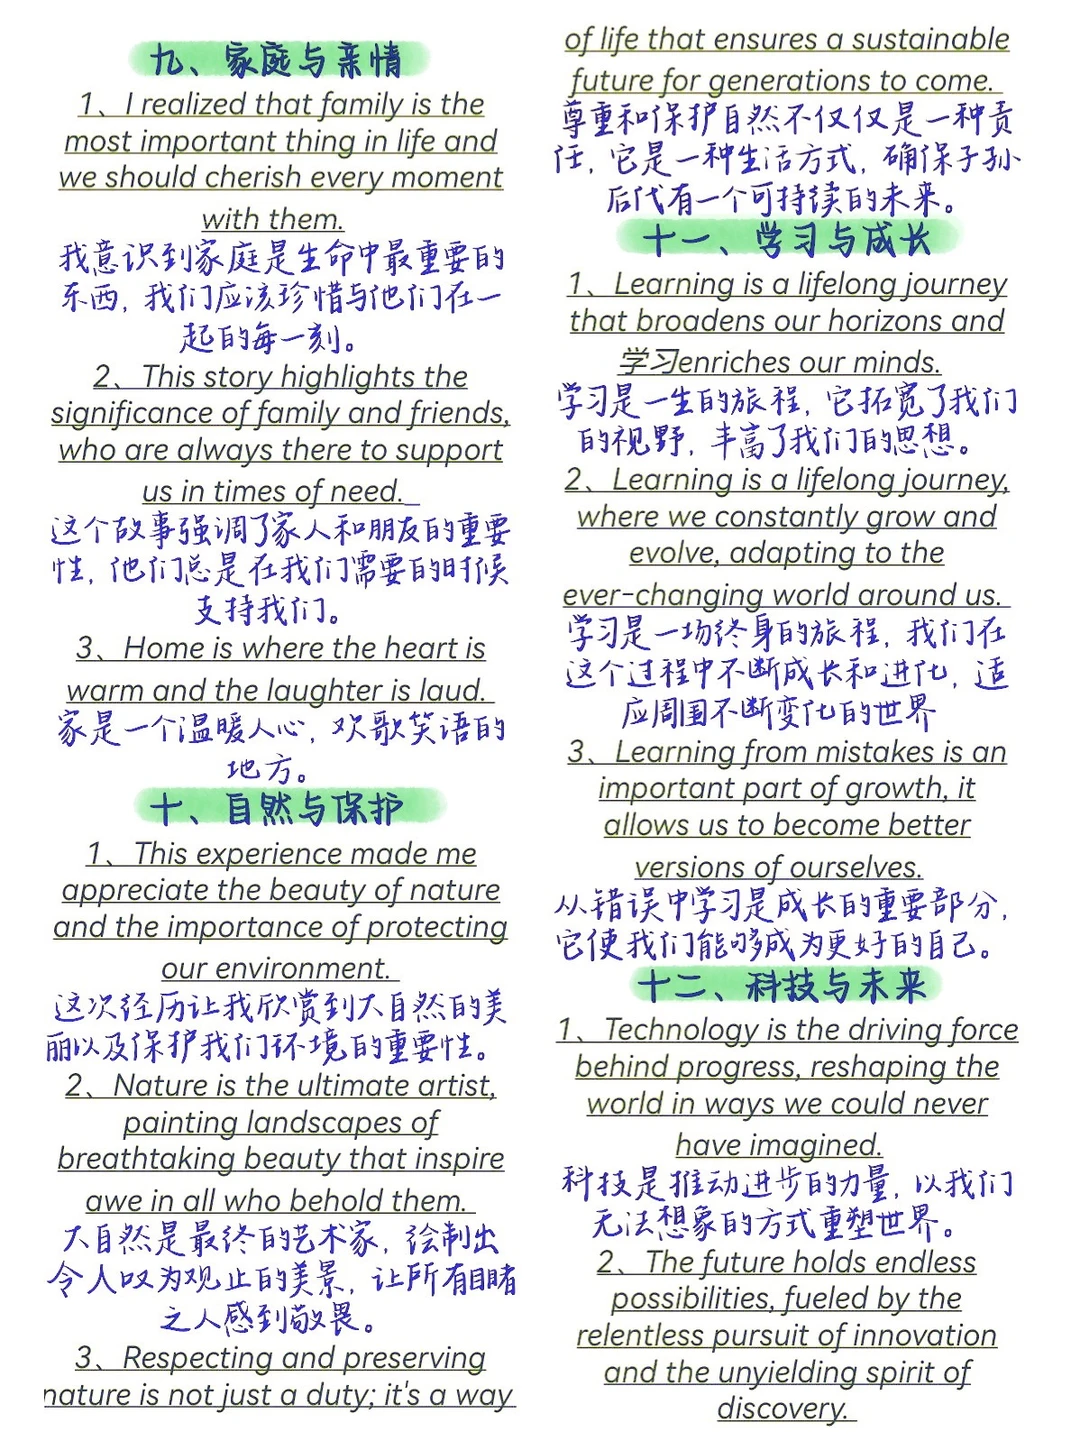 九、家庭与亲情
1、I realized that family is the
most important thing in life and
we should cherish every moment
with them.
我意识到家庭是生命中最重要的
东西，我们应该珍惜与他们在一
起的每一刻。
2、This story highlights the
significance of family and friends,
who are always there to support
us in times of need.
这个故事强调了家人和朋友的重要
性，他们总是在我们需要的时候
支持我们。
3、Home is where the heart is
warm and the laughter is laud.
家是一个温暖人心，欢歌笑语的
地方。
十、自然与保护
1、This experience made me
appreciate the beauty of nature
and the importance of protecting
our environment.
这次经历让我欣赏到大自然的美
丽以及保护我们环境的重要性。
2、Nature is the ultimate artist,
painting landscapes of
breathtaking beauty that inspire
awe in all who behold them.
大自然是最终的艺术家，绘制出
令人叹为观止的美景，让所有目睹
之人感到敬畏。
3、Respecting and preserving
nature is not just a duty; it's a way
of life that ensures a sustainable
future for generations to come.
尊重和保护自然不仅仅是一种责
任，它是一种生活方式，确保子孙
后代有一个可持续的未来。
十一、学习与成长
1、Learning is a lifelong journey
that broadens our horizons and
学习enriches our minds.
学习是一生的旅程，它拓宽了我们
的视野，丰富了我们的思想。
2、Learning is a lifelong journey,
where we constantly grow and
evolve, adapting to the
ever-changing world around us.
学习是一场终身的旅程，我们在
这个过程中不断成长和进化，适
应周围不断变化的世界
3、Learning from mistakes is an
important part of growth, it
allows us to become better
versions of ourselves.
从错误中学习是成长的重要部分，
它使我们能够成为更好的自己。
十二、科技与未来
1、Technology is the driving force
behind progress, reshaping the
world in ways we could never
have imagined.
科技是推动进步的力量，以我们
无法想象的方式重塑世界。
2、The future holds endless
possibilities, fueled by the
relentless pursuit of innovation
and the unyielding spirit of
discovery.